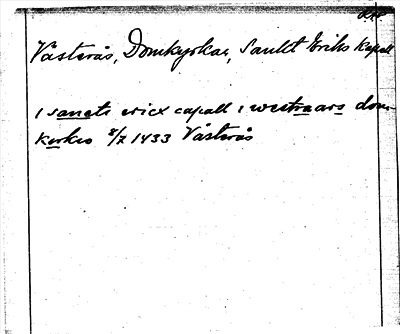 Västerås, Domkyrkan, Sankt Eriks Kapell
i sancti ericx capall i westraars dom-
kirkio 8/7 1433 Västerås